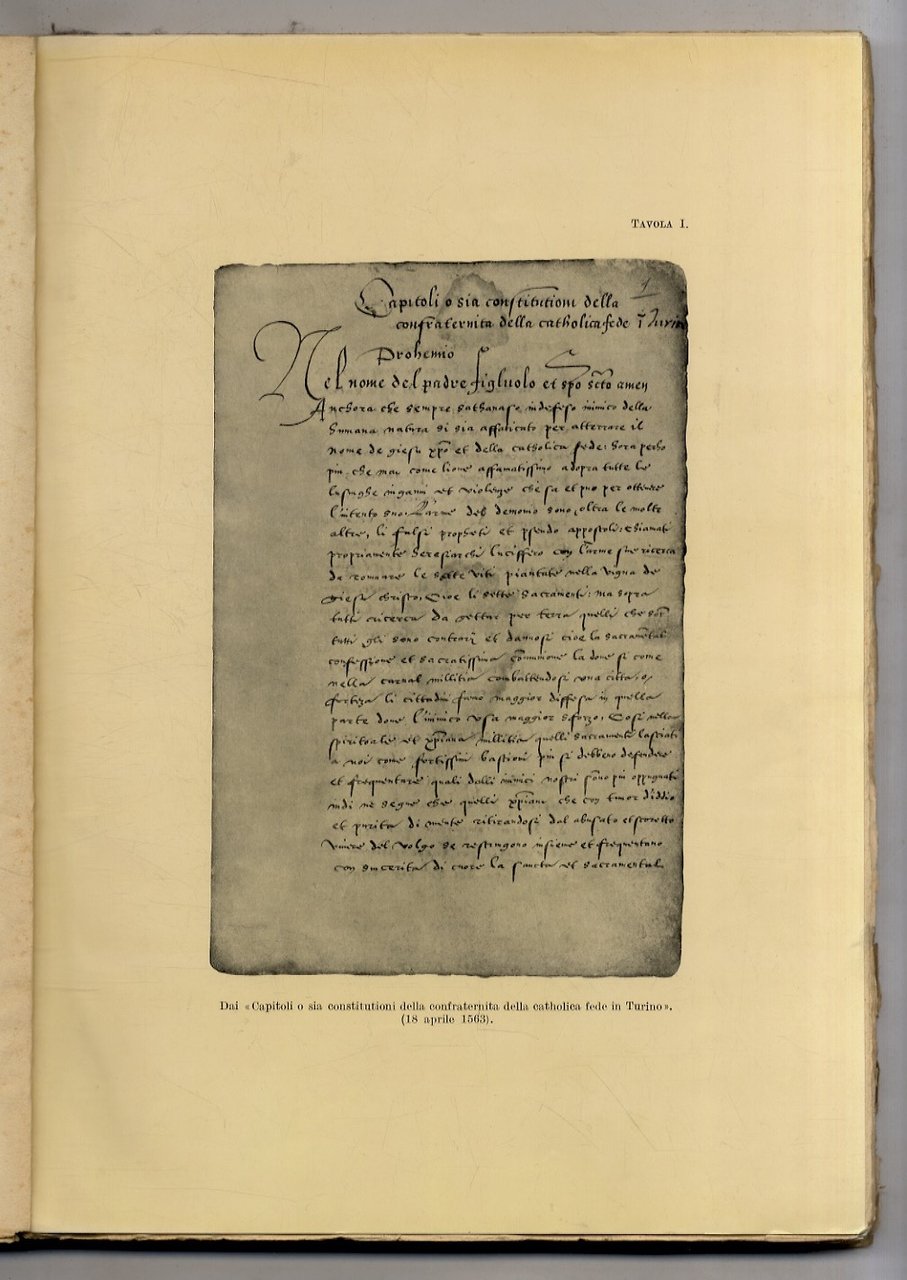 TAVOLA I.
1
Capitoli o sia constitutioni della
confraternita della catholica fede ī Turino
Prohemio
Nel nome del padre figluolo et spō scto amen
Anchora che sempre sathanaso indefeso inimico della
humana natura si sia affaticato per atterrare il
nome de giesu xpō et della catholica fede: hora perho
piu che mai come lione affamatissimo adopra tutte le
lusinghe inganni et violenze che sa et puo per ottenere
l'intento suo. L'arme del demonio sono, oltra le molte
altre, li falsi propheti et pseudo appostoli: chiamati
propriamente heresiarchi luciffero con l'arme sue ricerca
da romanre le sette viti piantate nella vigna de
giesu christo, Cioe li sette sacramenti: ma sopra
tutti ricerca da gettar per terra quelli che
tutti gli sono contrarii et dannosi cioe la sacramētal
confessione et sacratissima cōmunione la doue si come
nella carnal millitia combattendosi una citta, o,
forteza li cittadini fanno maggior diffesa in quella
parte doue l'inimico usa maggior sforzo, Cosi nella
spirituale et xpīana millitia quelli sacramente lasciati
a noi come fortissimi bastioni piu si debbeno defendere
et frequentare quali dalli inimici nostri sono piu oppugnati
indi ne segue che quelli xpīani che con timor d'iddio
et purita di mente ritirandosi dal abusato et scoretto
vivere del volgo se restringono insieme et frequentano
con sincerita di cuore la sancta et sacramental
Dai «Capitoli o sia constitutioni della confraternita della catholica fede in Turino».
(18 aprile 1563).